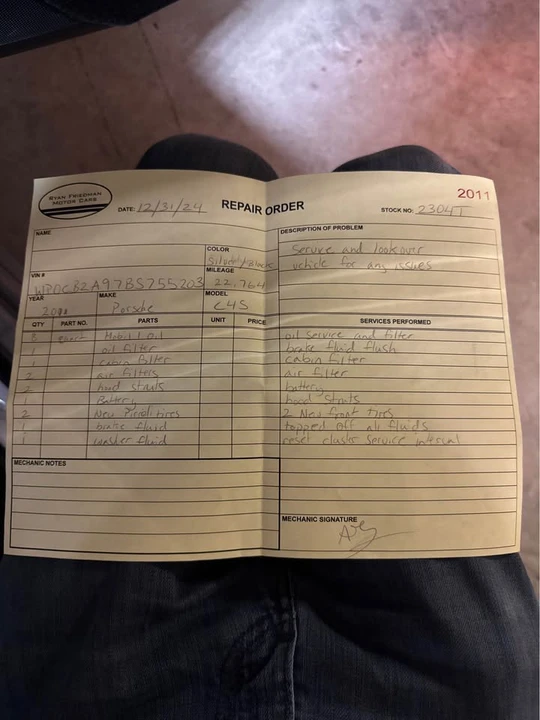 RYAN FRIEDMAN
MOTOR CARS
DATE: 12/31/24
REPAIR ORDER
2011
STOCK NO: 2304T
NAME
COLOR
Silver/
VIN #
MILEAGE
WP0CB2A97BS755203
22,764
YEAR
MAKE
Porsche
MODEL
C4S
DESCRIPTION OF PROBLEM
Service and look over
vehicle for any issues
QTY PART NO. PARTS UNIT PRICE
8 Mobil 1 oil
1 oil filter
1 cabin filter
2 air filters
2 hood struts
1 Battery
2 New Pirelli tires
1 brake fluid
1 washer fluid
SERVICES PERFORMED
oil service and filter
brake fluid flush
cabin filter
air filter
battery
hood struts
2 New front tires
topped off all fluids
reset cluster service interval
MECHANIC NOTES
MECHANIC SIGNATURE